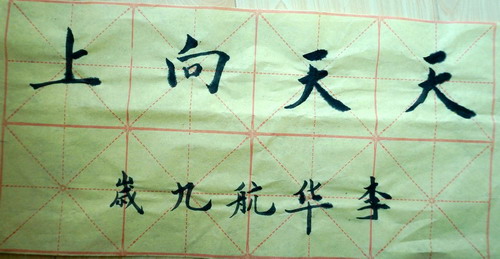 天天向上
李华航九歲